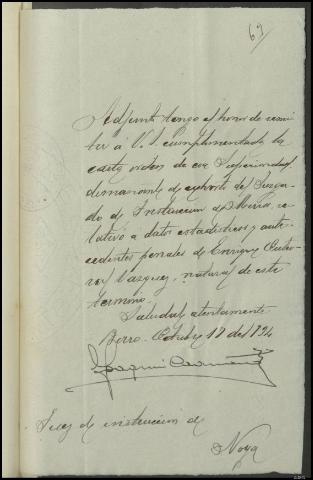 69
Adjunto tengo el honor de remi
tir á V. S. cumplimentada la
carta orden de esa Superioridad
dimanante de exhorto del Juzga-
do de Instrucción de, re-
lativo a datos estadísticos y ante-
cedentes penales de Enrique
Vázquez, natural de este
termino.
Saludale atentamente
Octubre 18 del 924
Joaquin
Juez de instruccion de
Noya